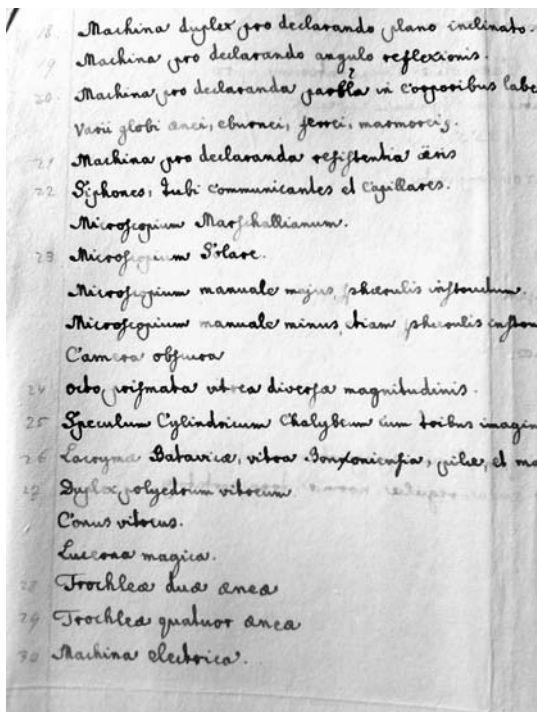 18. Machina duplex pro declarando plano inclinato.
19 Machina pro declarando angulo reflexionis.
20. Machina pro declaranda parbla in corporibus labe
Varii globi ænei, eburnei, ferrei, marmorei,
21 Machina pro declaranda resistentia äeris
22 Siphones, Tubi communicantes et Capillares.
Microscopium Marshallianum.
23 Microscopium Solare.
Microscopium manuale majus, sphærulis instructum.
Microscopium manuale minus, etiam sphærulis instru
Camera obscura
24 octo prismata vitrea diversa magnitudinis.
25 Speculum Cylindricum Chalybeum cum tribus imagin
26 Lacryma Batavica, vitra Bononiensia, pilæ, et ma
27 Duplex polyedrum vitreum
Conus vitreus.
Lucerna magica.
28 Trochleæ duæ æneæ
29 Trochleæ quatuor æneæ
30 Machina electrica.